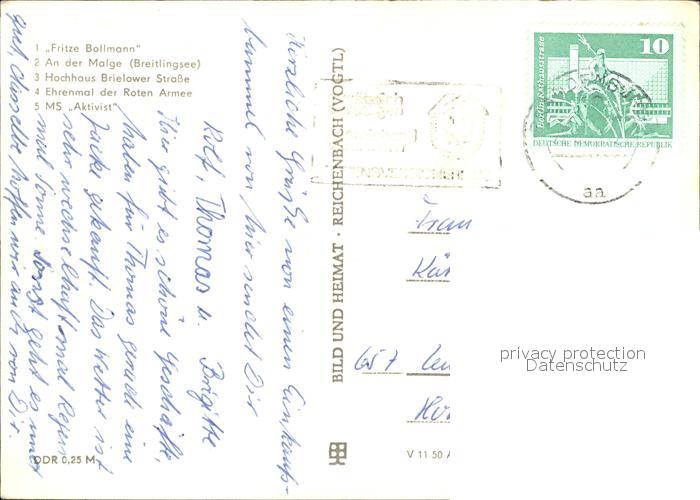 1 „Fritze Bollmann"
2 An der Malge (Breitlingsee)
3 Hochhaus Brielower Straße
4 Ehrenmal der Roten Armee
5 MS „Aktivist"
Herzliche Grüße von einen Einkaufs-
bummel von hier sendet Dir
Rolf, Thomas u. Brigitte
Hier gibt es schöne Geschäfte,
haben für Thomas gerade eine
Jacke gekauft. Das Wetter ist
sehr wechselhaft mal Regen
mal Sonne. Sonst geht es uns
gut, dasselbe hoffen wir auch von Dir.
DDR 0,25 M
BILD UND HEIMAT · REICHENBACH (VOGTL)
V 11 50
10
Berlin-Rathausstraße
DEUTSCHE DEMOKRATISCHE REPUBLIK
aa
Frau
657
privacy protection
Datenschutz